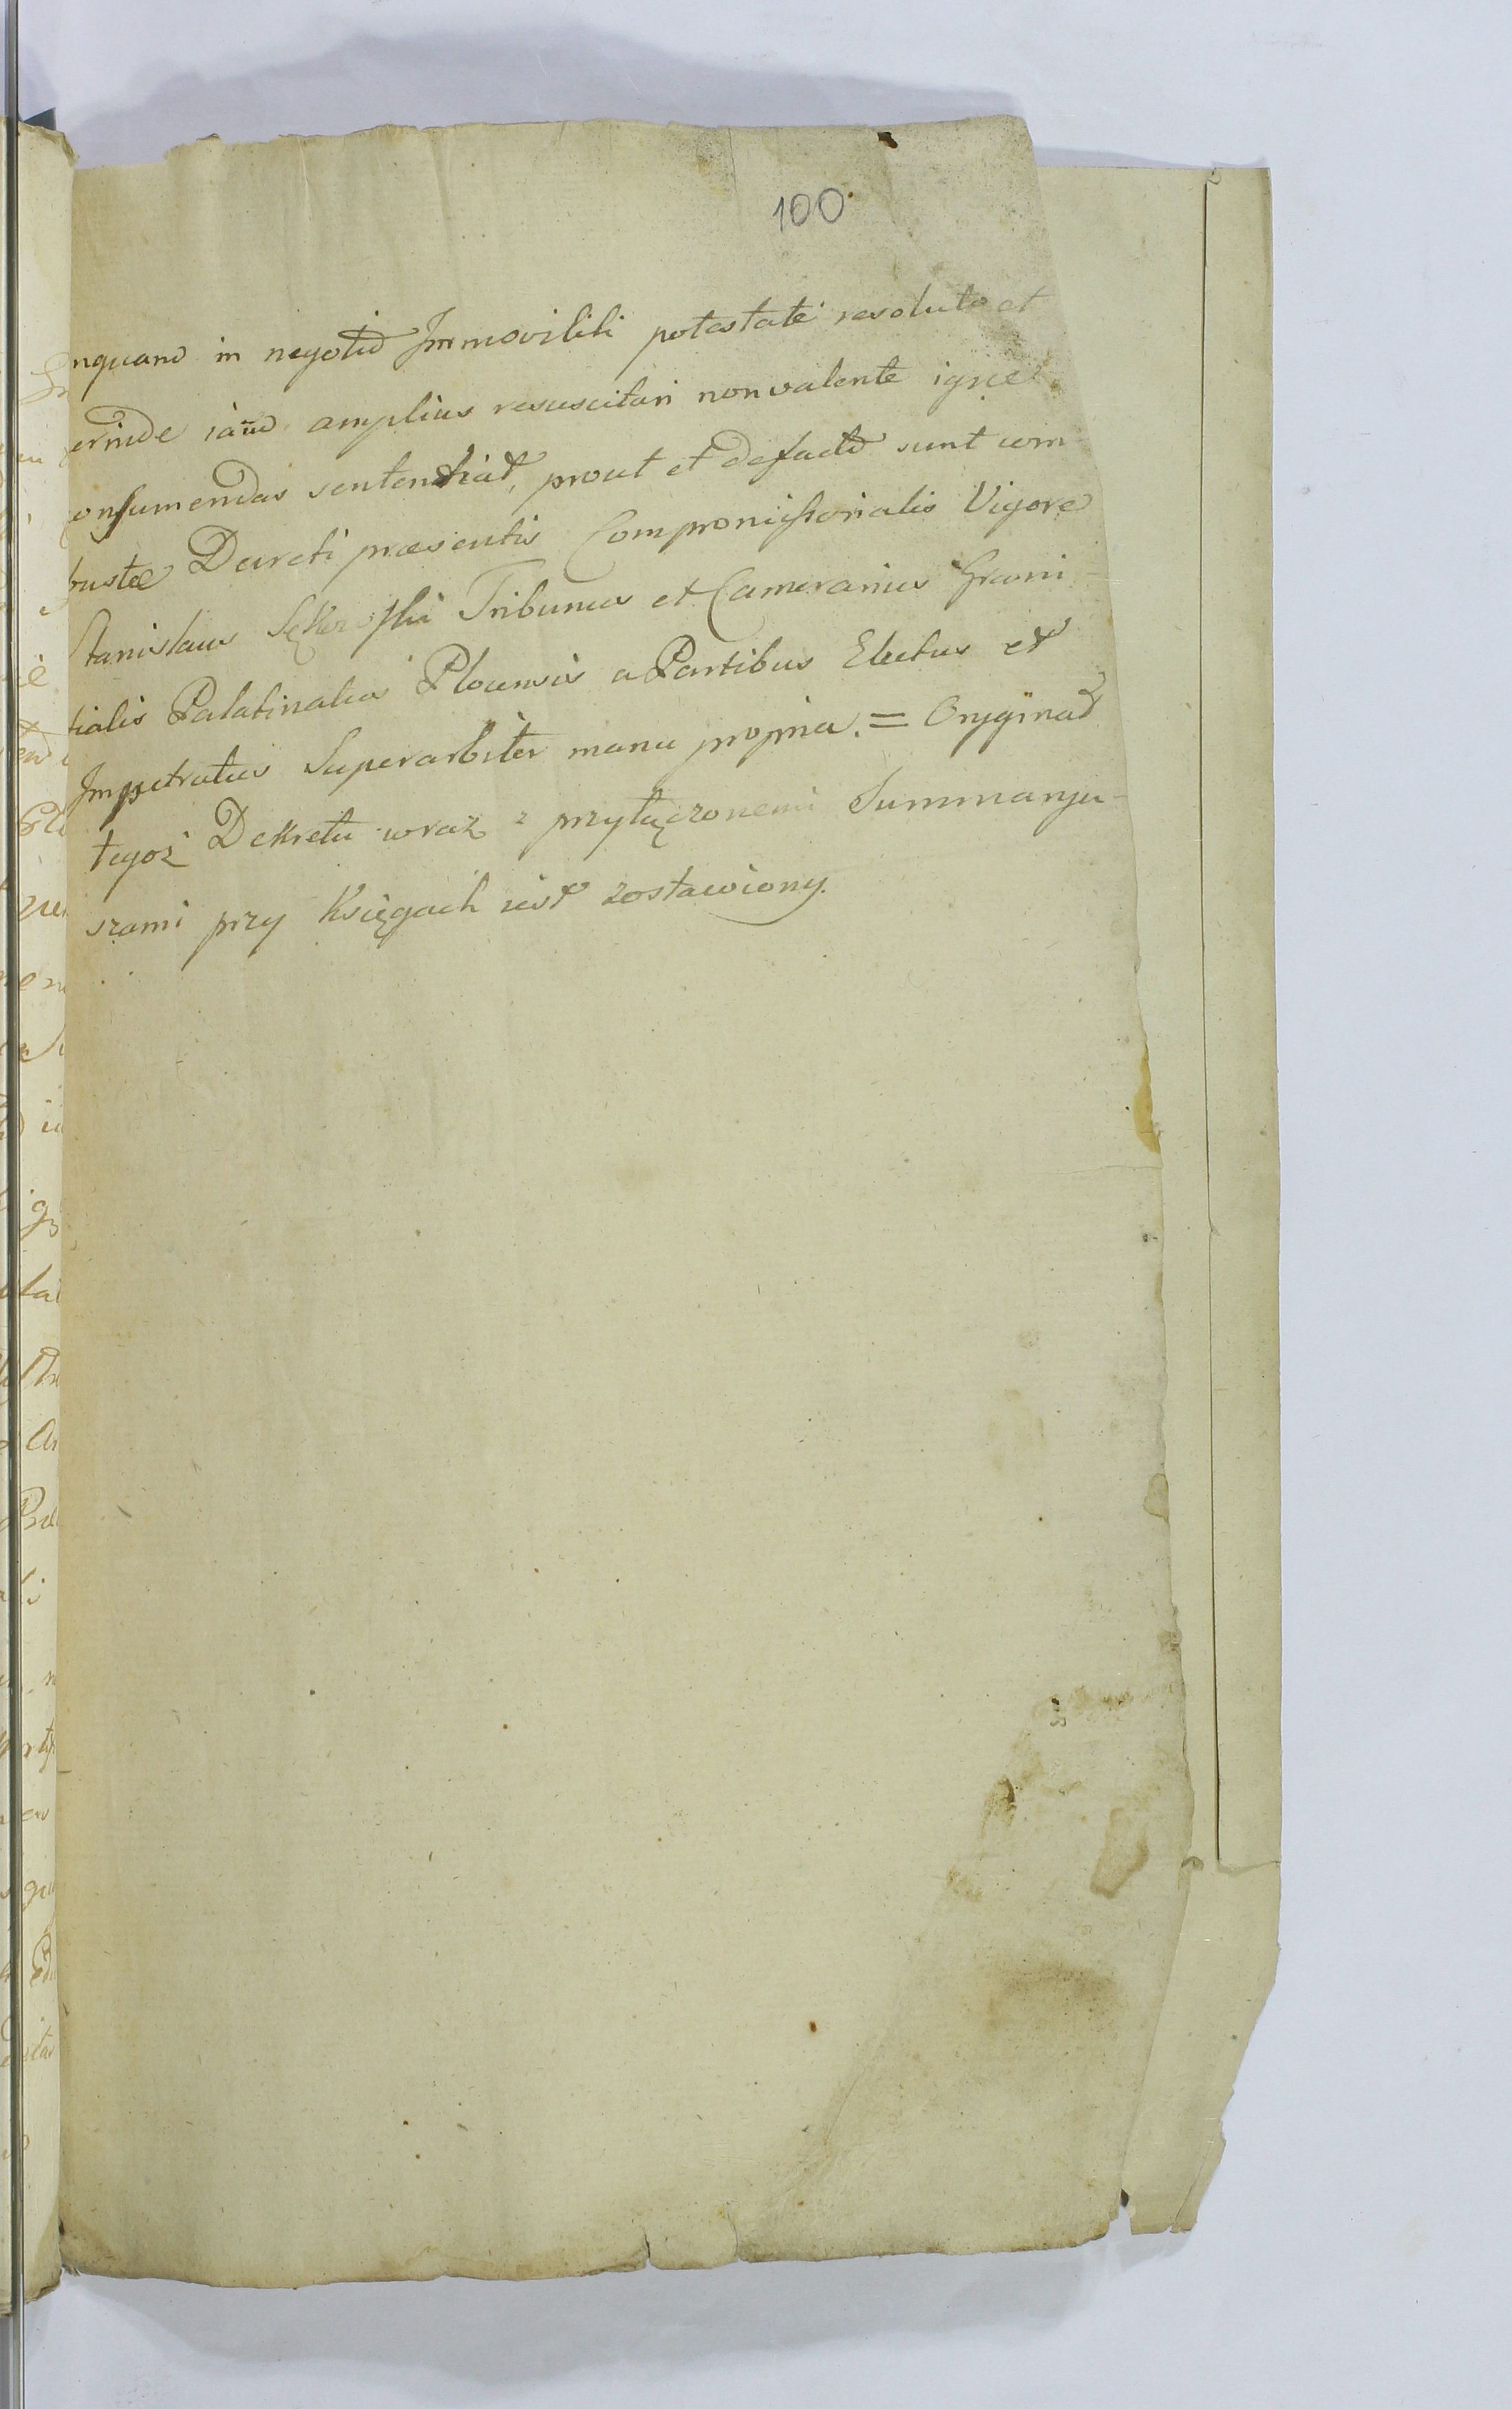 100
nquam in negotio Immovibili potestate resoluto et
erinde iam amplius resuscitari non valente igne
consumendas sentenciat, prout et defacto sunt com
bustae Decreti praesentis Compromissorialis Vigore
Stanislaus Tribunus et Camerarius Grani=
tialis Palatinatus Plocensis a Partibus Electus et
Impetratus Superarbiter manu propria. = Oryginał
tegoż Dekretu wraz z przyłączonemi Summaryu-
szami przy Księgach iest zostawiony.